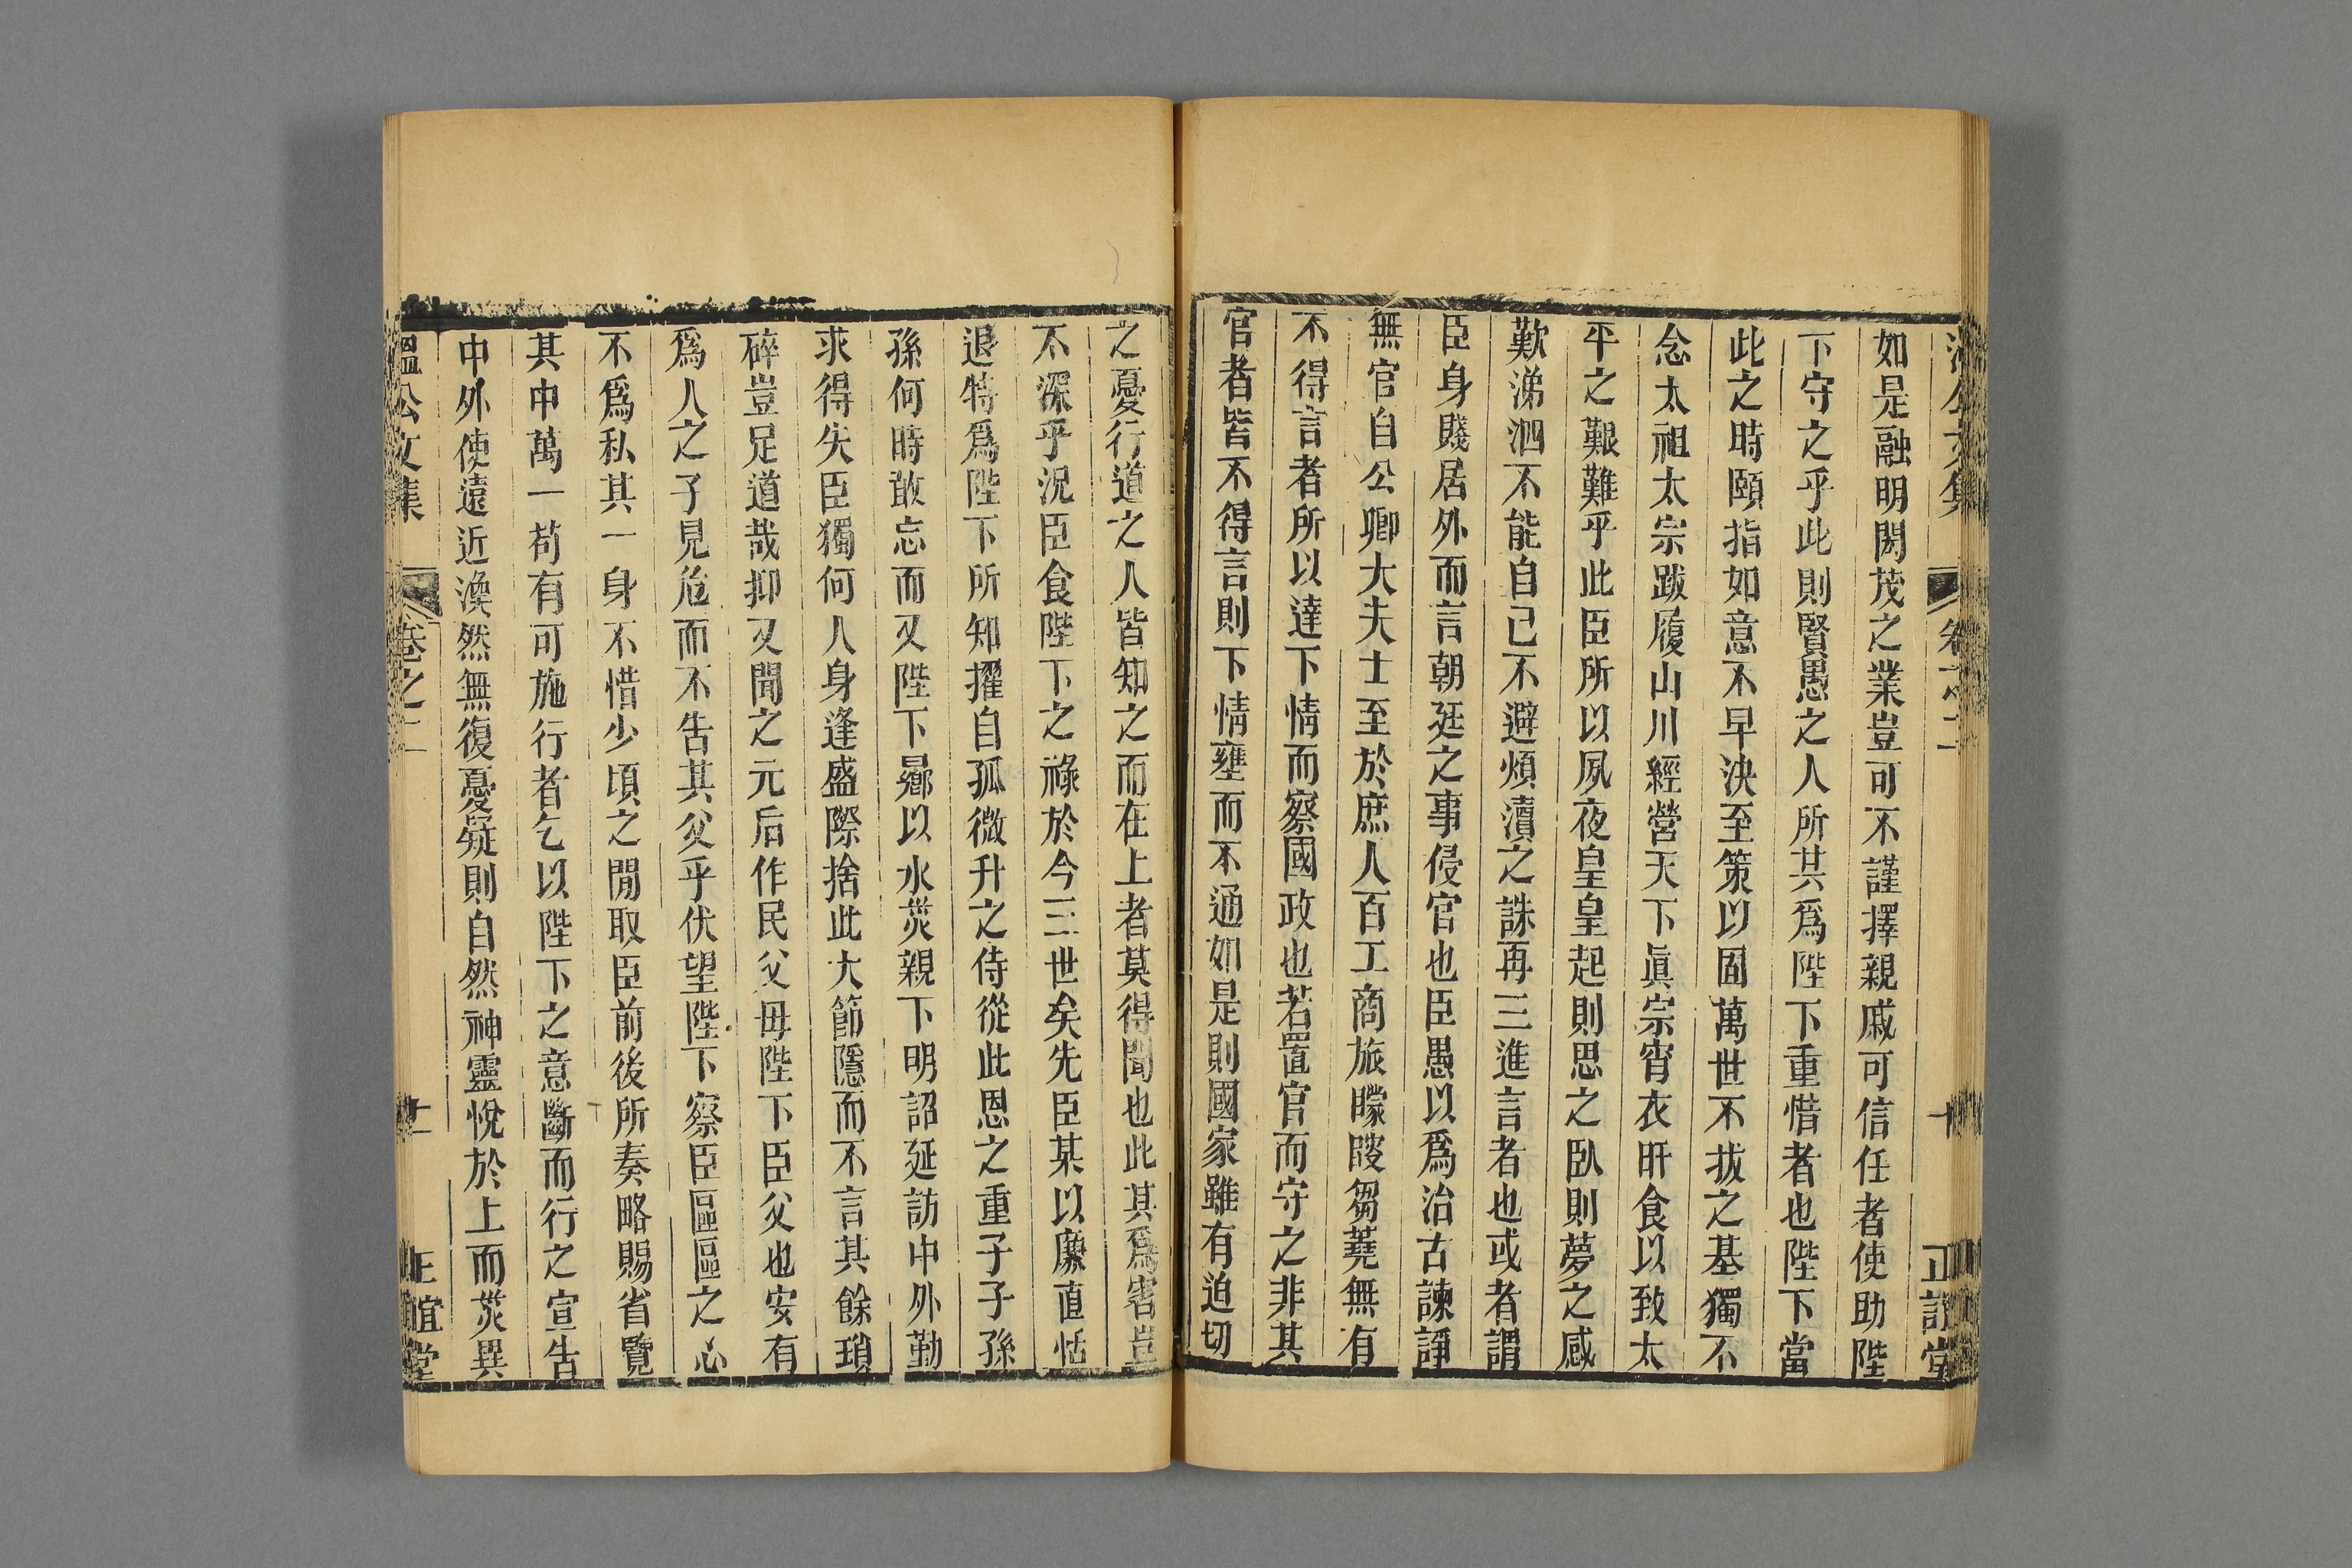 溫公文集 卷之二 十 正誼堂
如是融明閎茂之業豈可不謹擇親戚可信任者使助陛
下守之乎此則賢愚之人所共爲陛下重惜者也陛下當
此之時頤指如意不早決至策以固萬世不拔之基獨不
念太祖太宗跋履山川經營天下眞宗宵衣旰食以致太
平之艱難乎此臣所以夙夜皇皇起則思之臥則夢之感
歎涕泗不能自已不避煩瀆之誅再三進言者也或者謂
臣身賤居外而言朝廷之事侵官也臣愚以爲治古諫諍
無官自公卿大夫士至於庶人百工商旅矇瞍芻蕘無有
不得言者所以達下情而察國政也若置官而守之非其
官者皆不得言則下情壅而不通如是則國家雖有迫切
之憂行道之人皆知之而在上者莫得聞也此其爲害豈
不深乎況臣食陛下之祿於今三世矣先臣某以廉直恬
退特爲陛下所知擢自孤微升之侍從此恩之重子子孫
孫何時敢忘而又陛下曏以水災親下明詔延訪中外勤
求得失臣獨何人身逢盛際捨此大節隱而不言其餘瑣
碎豈足道哉抑又聞之元后作民父毋陛下臣父也安有
爲人之子見危而不告其父乎伏望陛下察臣區區之心
不爲私其一身不惜少頃之閒取臣前後所奏略賜省覽
其中萬一苟有可施行者乞以陛下之意斷而行之宣告
中外使遠近渙然無復憂疑則自然神靈悅於上而災異
溫公文集 卷之二 十一 正誼堂